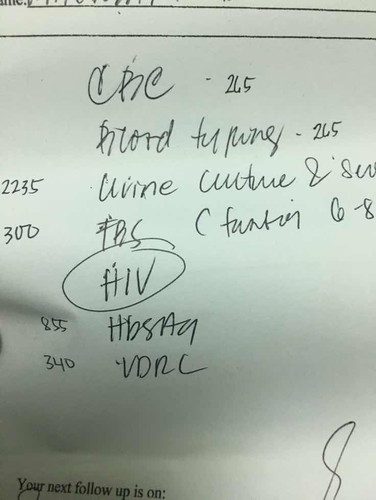 CBC - 265
Blood typing - 265
2235 Urine culture &
300 FBS (fasting 6-8
HIV
855 HbsAg
340 VDRL
Your next follow up is on: